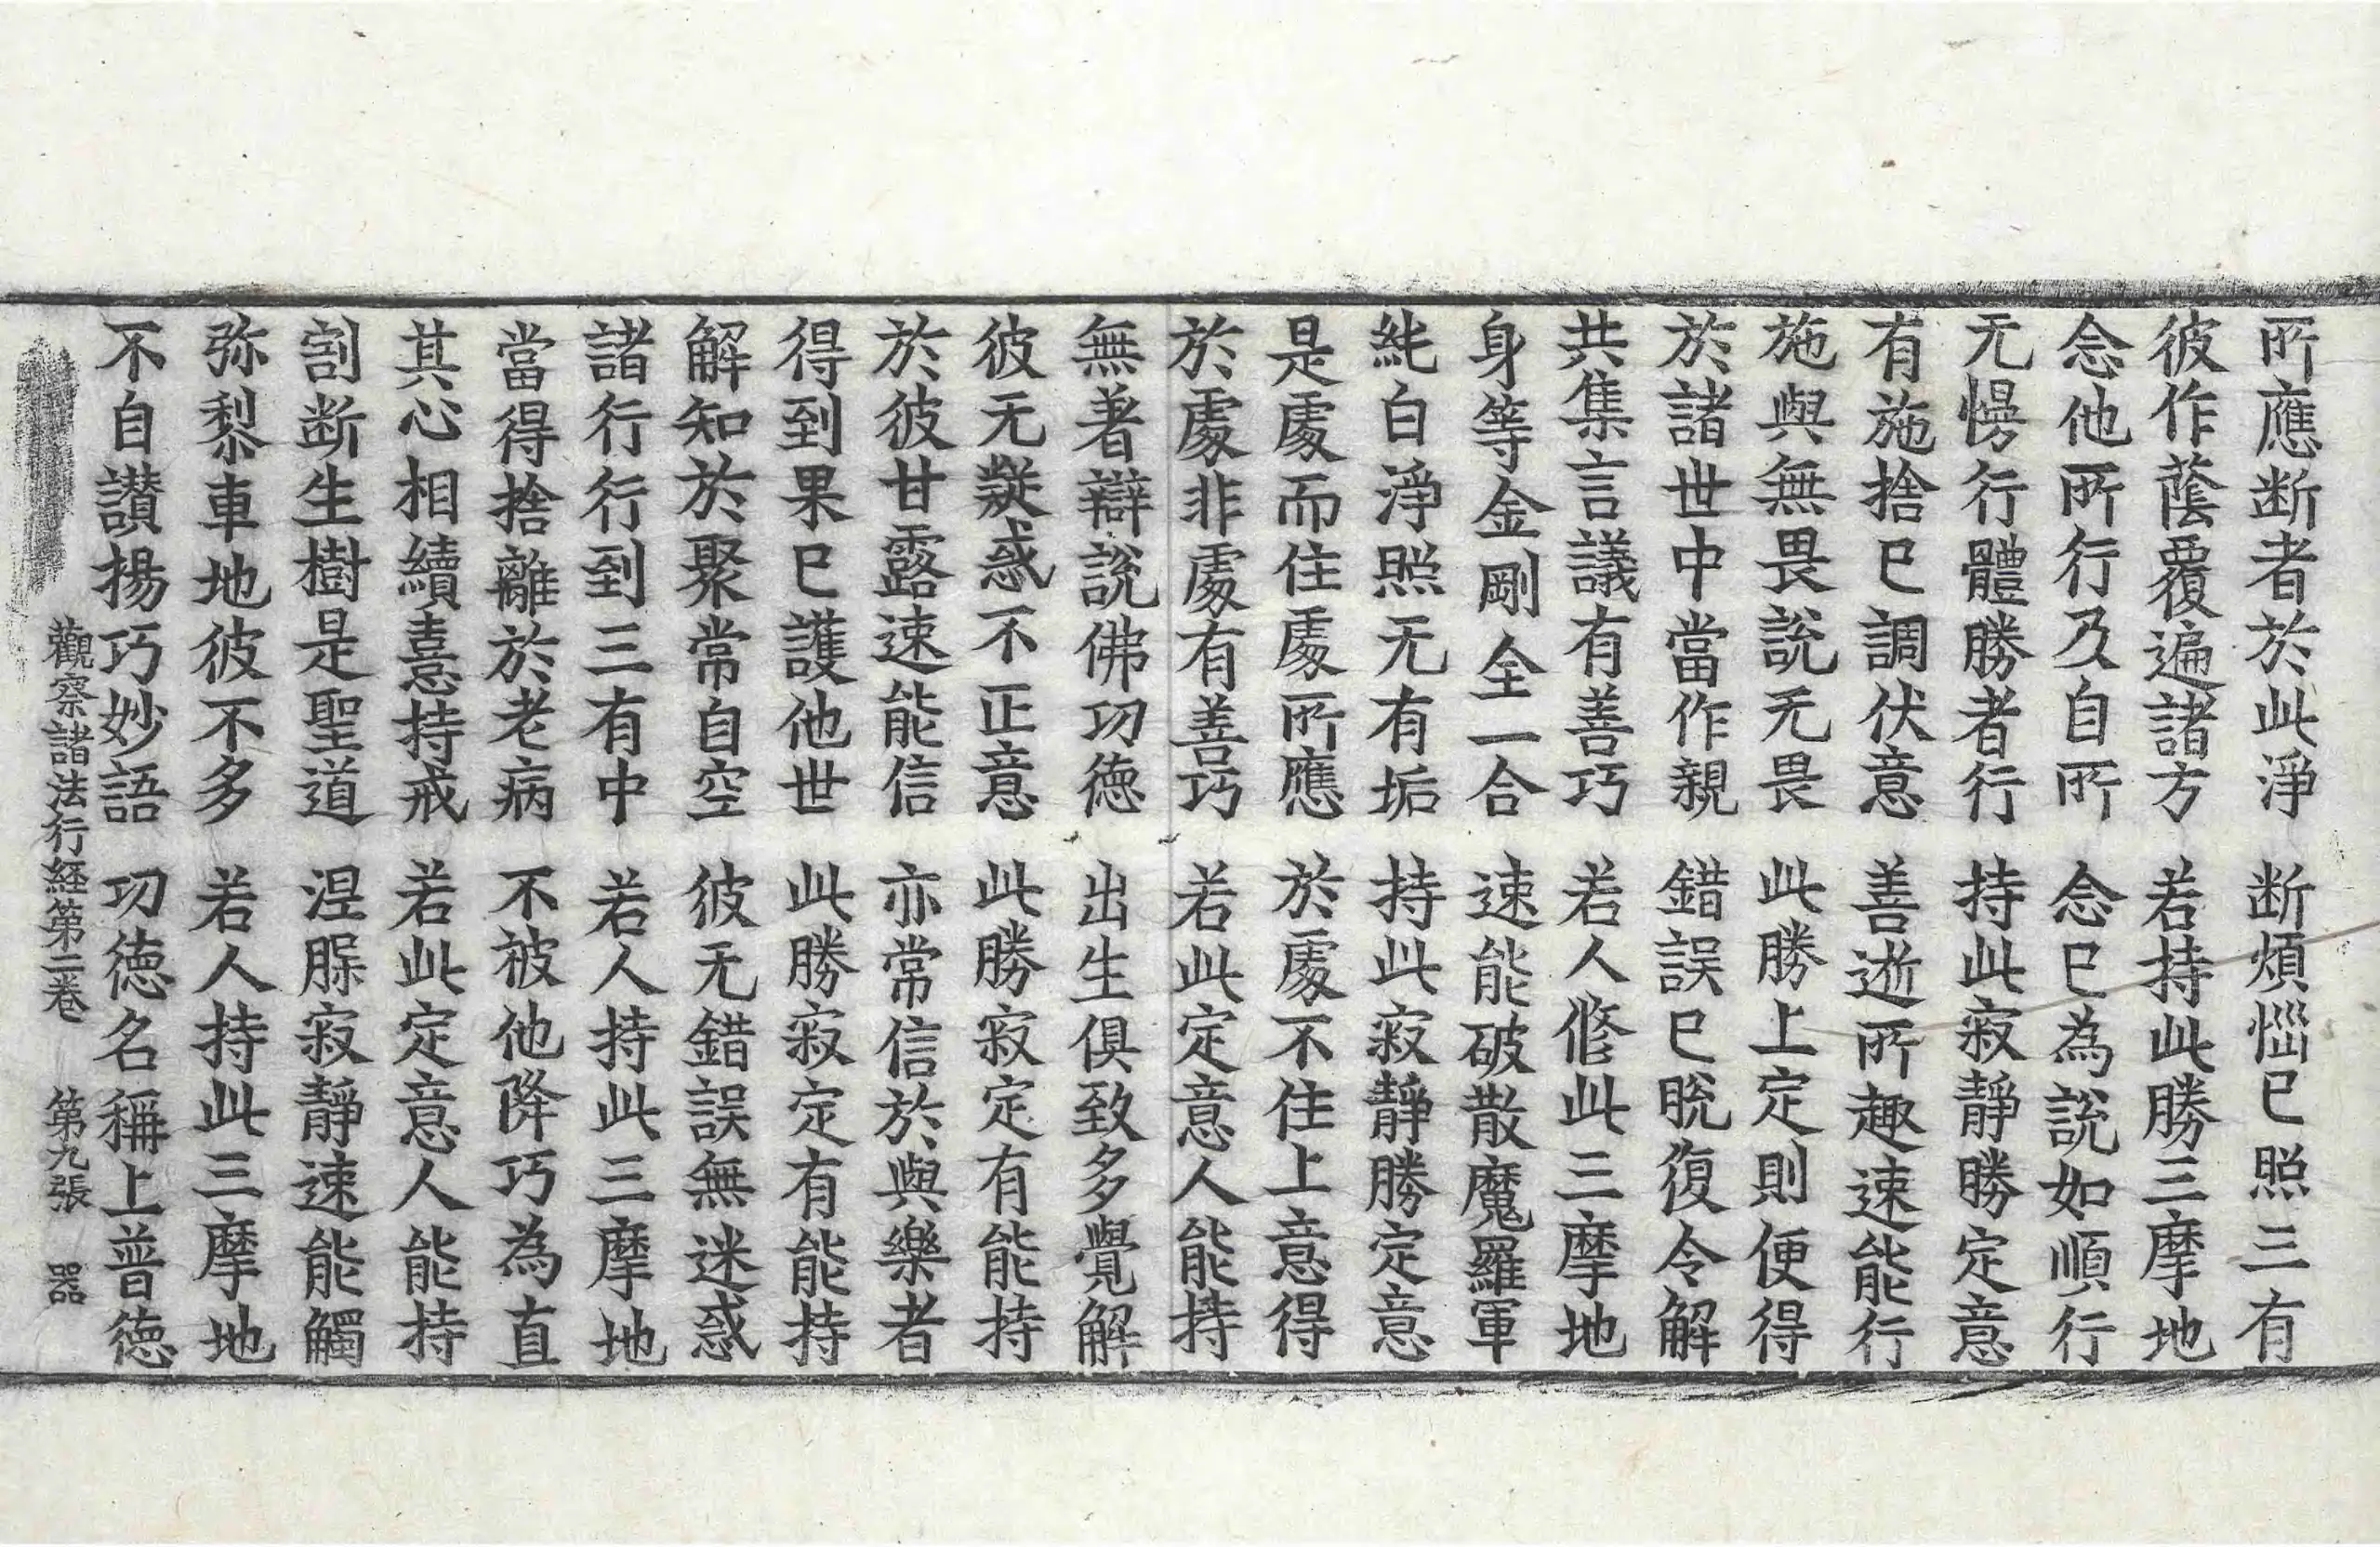 所應断者於此淨　断煩惱已照三有
彼作蔭覆遍諸方　若持此勝三摩地
念他所行及自所　念已為說如順行
无慢行體勝者行　持此寂靜勝定意
有施捨已調伏意　善逝所趣速能行
施與無畏說无畏　此勝上定則便得
於諸世中當作親　錯誤已脫復令解
共集言議有善巧　若人修此三摩地
身等金剛全一合　速能破散魔羅軍
純白淨照无有垢　持此寂靜勝定意
是處而住處所應　於處不住上意得
於處非處有善巧　若此定意人能持
無著辯說佛功德　出生俱致多覺解
彼无疑惑不正意　此勝寂定有能持
於彼甘露速能信　亦常信於與樂者
得到果已護他世　此勝寂定有能持
解知於聚常自空　彼无錯誤無迷惑
諸行行到三有中　若人持此三摩地
當得捨離於老病　不被他降巧為直
其心相續憙持戒　若此定意人能持
割断生樹是聖道　涅槃寂靜速能觸
弥梨車地彼不多　若人持此三摩地
不自讃揚巧妙語　功德名稱上普德
觀察諸法行経第二卷　第九張　器